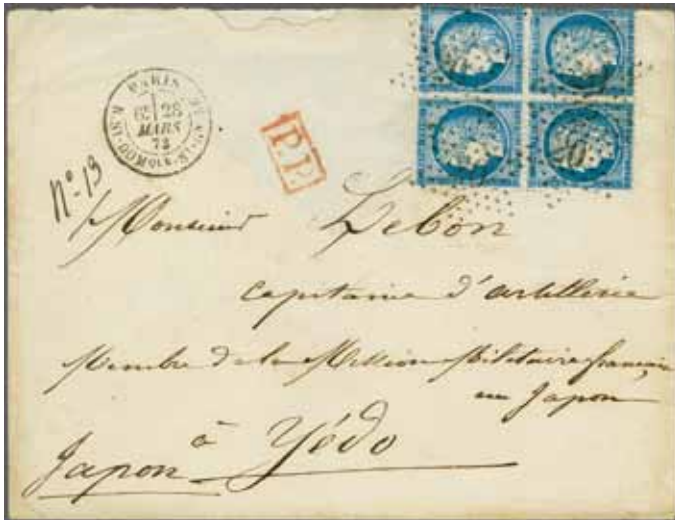 PARIS
6E
28
MARS
73
R. ST-DOMque-St-Gn
P.P.
20
No. 13
Monsieur Lebon
capitaine d'artillerie
Membre de la Mission Militaire française
au Japon
à Yédo
Japon